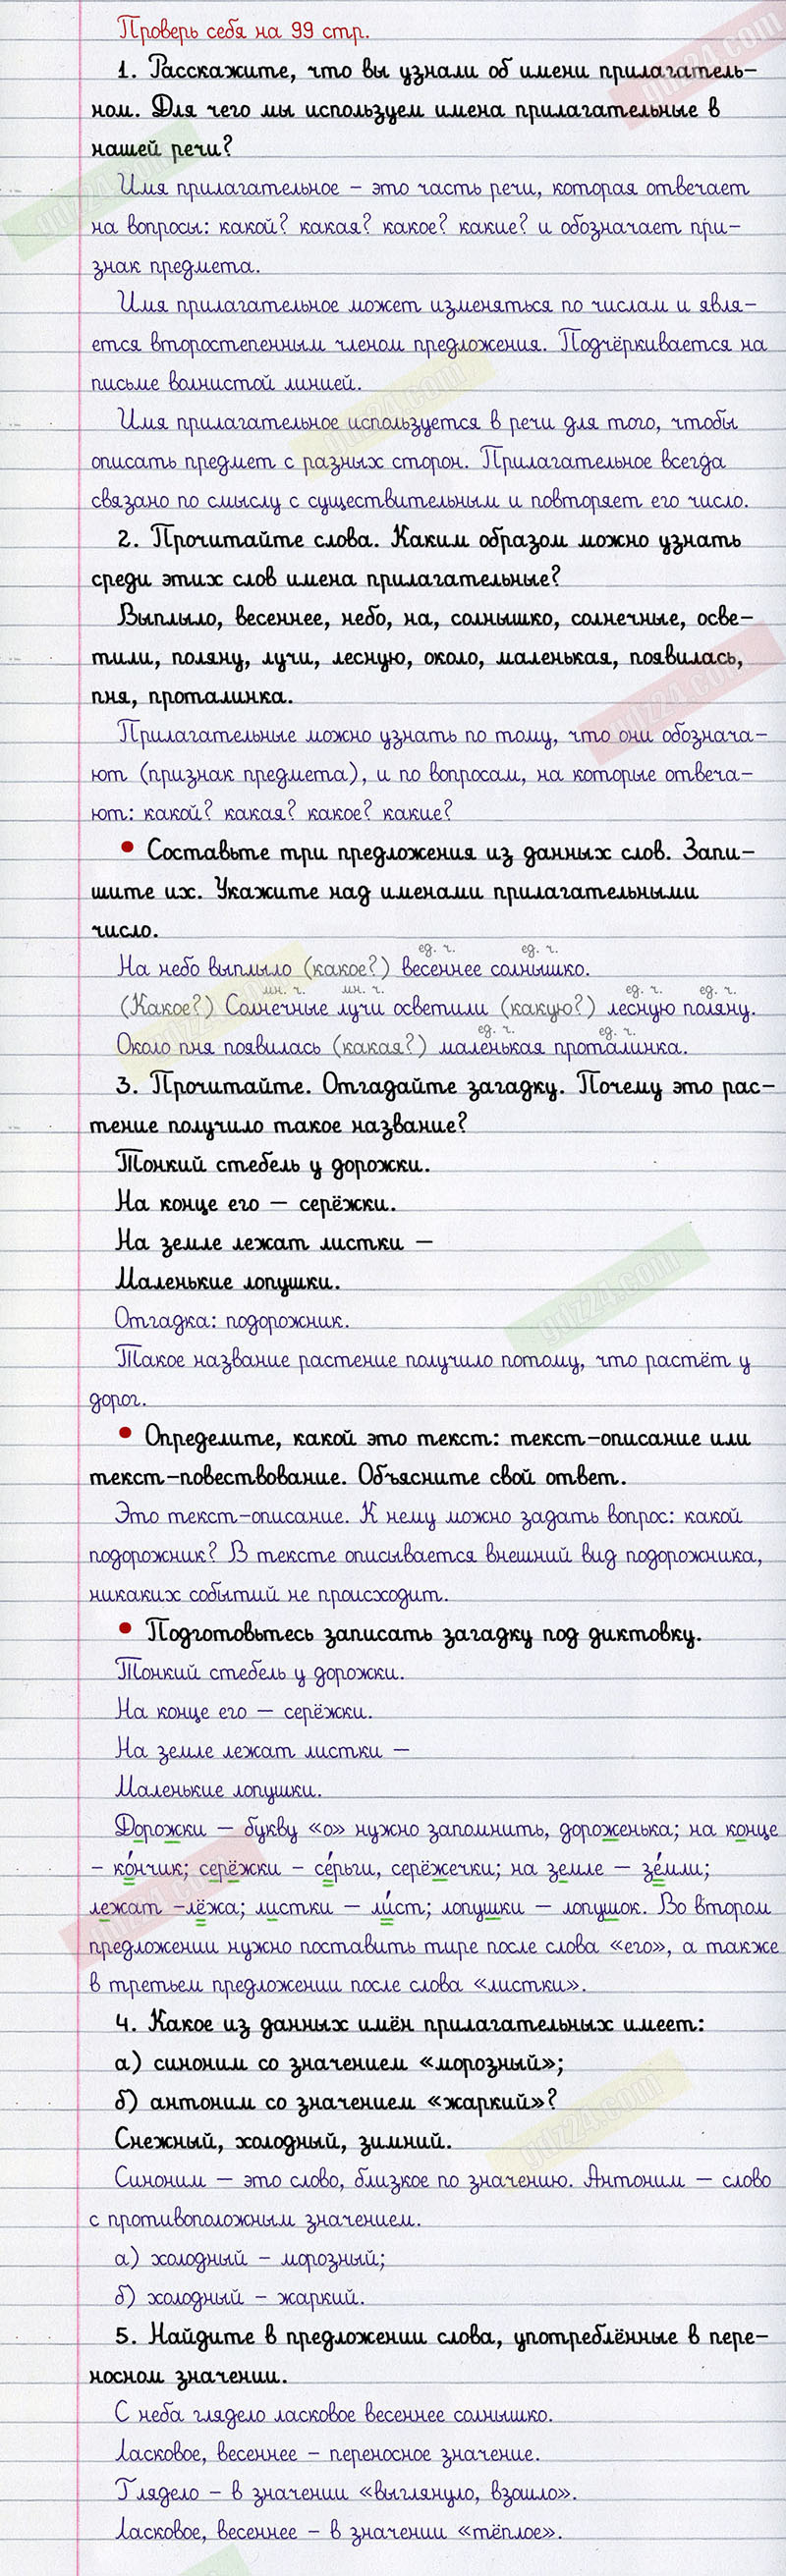 Проверь себя на 99 стр.
1. Расскажите, что вы узнали об имени прилагатель-
ном. Для чего мы используем имена прилагательные в
нашей речи?
Имя прилагательное – это часть речи, которая отвечает
на вопросы: какой? какая? какое? какие? и обозначает при-
знак предмета.
Имя прилагательное может изменяться по числам и явля-
ется второстепенным членом предложения. Подчёркивается на
письме волнистой линией.
Имя прилагательное используется в речи для того, чтобы
описать предмет с разных сторон. Прилагательное всегда
связано по смыслу с существительным и повторяет его число.
2. Прочитайте слова. Каким образом можно узнать
среди этих слов имена прилагательные?
Выплыло, весеннее, небо, на, солнышко, солнечные, осве-
тили, поляну, лучи, лесную, около, маленькая, появилась,
пня, проталинка.
Прилагательные можно узнать по тому, что они обознача-
ют (признак предмета), и по вопросам, на которые отвеча-
ют: какой? какая? какое? какие?
• Составьте три предложения из данных слов. Запи-
шите их. Укажите над именами прилагательными
число.
ед. ч. ед. ч.
На небо выплыло (какое?) весеннее солнышко.
мн. ч. мн. ч. ед. ч. ед. ч.
(Какое?) Солнечные лучи осветили (какую?) лесную поляну.
ед. ч. ед. ч.
Около пня появилась (какая?) маленькая проталинка.
3. Прочитайте. Отгадайте загадку. Почему это рас-
тение получило такое название?
Тонкий стебель у дорожки.
На конце его – серёжки.
На земле лежат листки –
Маленькие лопушки.
Отгадка: подорожник.
Такое название растение получило потому, что растёт у
дорог.
• Определите, какой это текст: текст-описание или
текст-повествование. Объясните свой ответ.
Это текст-описание. К нему можно задать вопрос: какой
подорожник? В тексте описывается внешний вид подорожника,
никаких событий не происходит.
• Подготовьтесь записать загадку под диктовку.
Тонкий стебель у дорожки.
На конце его – серёжки.
На земле лежат листки –
Маленькие лопушки.
Дорожки – букву «о» нужно запомнить, дороженька; на конце
– ко́нчик; серёжки – се́рьги, серёжечки; на земле – зе́мли;
лежат –лёжа; листки – ли́ст; лопушки – лопушок. Во втором
предложении нужно поставить тире после слова «его», а также
в третьем предложении после слова «листки».
4. Какое из данных имён прилагательных имеет:
а) синоним со значением «морозный»;
б) антоним со значением «жаркий»?
Снежный, холодный, зимний.
Синоним – это слово, близкое по значению. Антоним – слово
с противоположным значением.
а) холодный – морозный;
б) холодный – жаркий.
5. Найдите в предложении слова, употреблённые в пере-
носном значении.
С неба глядело ласковое весеннее солнышко.
Ласковое, весеннее – переносное значение.
Глядело – в значении «выглянуло, взошло».
Ласковое, весеннее – в значении «тёплое».
gdz24.com
gdz24.com
gdz24.com
gdz24.com
gdz24.com
gdz24.com